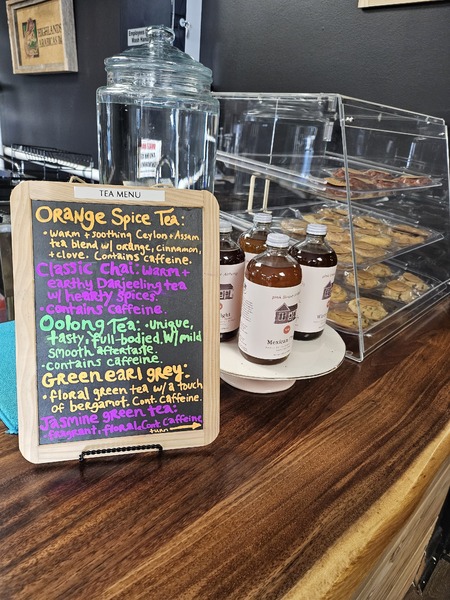 Employees
Wash Hands
HIGHLANDS
TEA MENU
Orange Spice Tea:
• warm + soothing Ceylon + Assam
tea blend w/ orange, cinnamon,
+ clove. Contains caffeine.
Classic Chai: warm +
earthy Darjeeling tea
w/ hearty spices.
• contains caffeine.
Oolong Tea: • unique,
tasty, full-bodied w/ mild
smooth aftertaste.
• contains caffeine.
Green earl grey:
• floral green tea w/ a touch
of bergamot. Cont. Caffeine.
Jasmine green tea:
• fragrant, floral. Cont. Caffeine
turn
Mexican